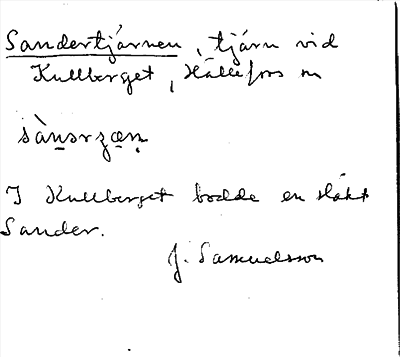 Sandertjärnen, tjärn vid
Kullberget, Hällefors sn
I Kullberget bodde en släkt
Sander.
J. Samuelsson